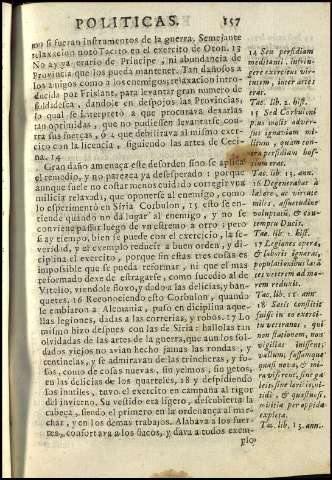 POLITICAS. 157
no si fueran instrumentos de la guerra. Semejante
relaxacion notò Tacito en el exercito de Oton. 13
No ay ya erario de Principe, ni abundancia de
Provincia que los pueda mantener. Tan dañosos a
los amigos como a los enemigos; relaxacion intro-
ducida por Frislant, para levantar gran numero de
soldadesca, dandole en despojos las Provincias,
lo qual se interpretò a que procurava dexarlas
tan oprimidas, que no pudiessen levantarse contra
sus fuerças, ò a que debilitava al mismo exer-
cito con la licencia, siguiendo las artes de Ceci-
na. 14
Gran daño amenaça este desorden sino se aplica
el remedio, y no parezca ya desesperado: porque
aunque suele no costar menos cuidado corregir vna
milicia relaxada, que oponerse al enemigo, como
lo esperimentò en Siria Corbulon, 15 esto se en-
tiende quando no dà lugar al enemigo, y no se
conviene passar luego de vn estremo a otro; pero
si ay tiempo, bien se puede con el exercicio, la se-
veridad, y el exemplo reducir a buen orden, y dis-
ciplina el exercito, porque sin estas tres cosas es
impossible que se pueda reformar, ni que el mas
reformado dexe de estragarse, como sucediò al de
Vitelio, viendole floxo, y dado a las delicias, y ban-
quetes. 16 Reconociendo esto Corbulon, quando
le embiaron a Alemania, puso en diciplina aque-
llas legiones, dadas a las correrias, y robos. 17 Lo
mismo hizo despues con las de Siria: hallolas tan
olvidadas de las artes de la guerra, que aun los sol-
dados viejos no avian hecho jamas las rondas, y
centinelas, y se admiravan de las trincheras, y fos-
sos, como de cosas nuevas, sin yelmos, sin petos,
en las delicias de los quarteles, 18 y despidiendo
los inutiles, tuvo el exercito en campaña al rigor
del invierno. Su vestido era ligero, descubierta la
cabeça, siendo el primero en la ordenança al mar-
char, y en los demas trabajos. Alabava a los fuer-
tes, confortava a los flacos, y dava a todos exem-
plo,
14 Sed perfidiam
meditanti, infrin-
gere exercitus vir-
tutem, inter artes
erat.
Tac. lib. 2. hist.
15 Sed Corbuloni
plus molis adver-
sus ignaviam mi-
litum, quam con-
tra perfidiam hos-
tium erat.
Tac. lib. 13. ann.
16 Degenerabat à
labore, ac virtute
miles, assuetudine
voluptatũ, & con-
temptu Ducis.
Tac. lib. 2. hist.
17 Legiones opera,
& laboris ignaras,
populationibus læ-
tas veterem ad mo-
rem reduxit.
Tac. lib. 11. ann.
18 Satis constitit
fuisse in eo exerci-
tu veteranos, qui
non stationem, non
vigilias inissent,
vallum, fossamque
quasi nova, & mi-
ra viserent, sine ga-
leis, sine loricis, ni-
tidi, & quæstuosi,
militia per oppida
expleta.
Tac. lib. 13. ann.